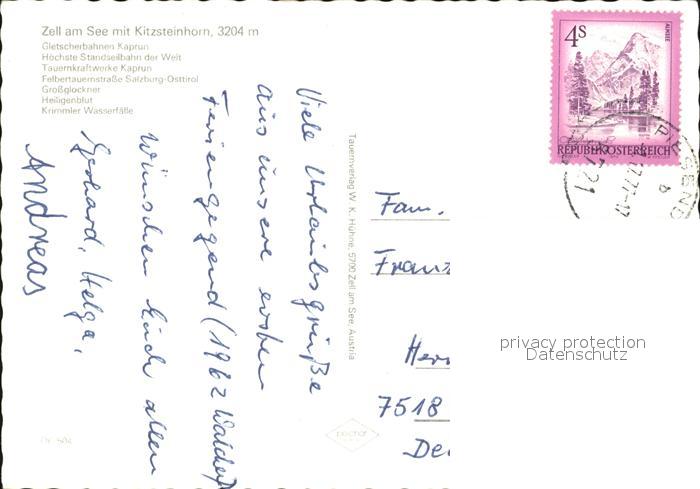 Zell am See mit Kitzsteinhorn, 3204 m
Gletscherbahnen Kaprun
Höchste Standseilbahn der Welt
Tauernkraftwerke Kaprun
Felbertauernstraße Salzburg-Osttirol
Großglockner
Heiligenblut
Krimmler Wasserfälle
Viele Urlaubsgrüße
aus unsere ersten
Feriengegend (1962
wünschen Euch allen
Gerhard, Helga,
Andreas
Tauernverlag W. K. Hühne, 5700 Zell am See, Austria
4S
ALMSEE
REPUBLIK ÖSTERREICH
Fam.
Franz
7518
privacy protection
Datenschutz